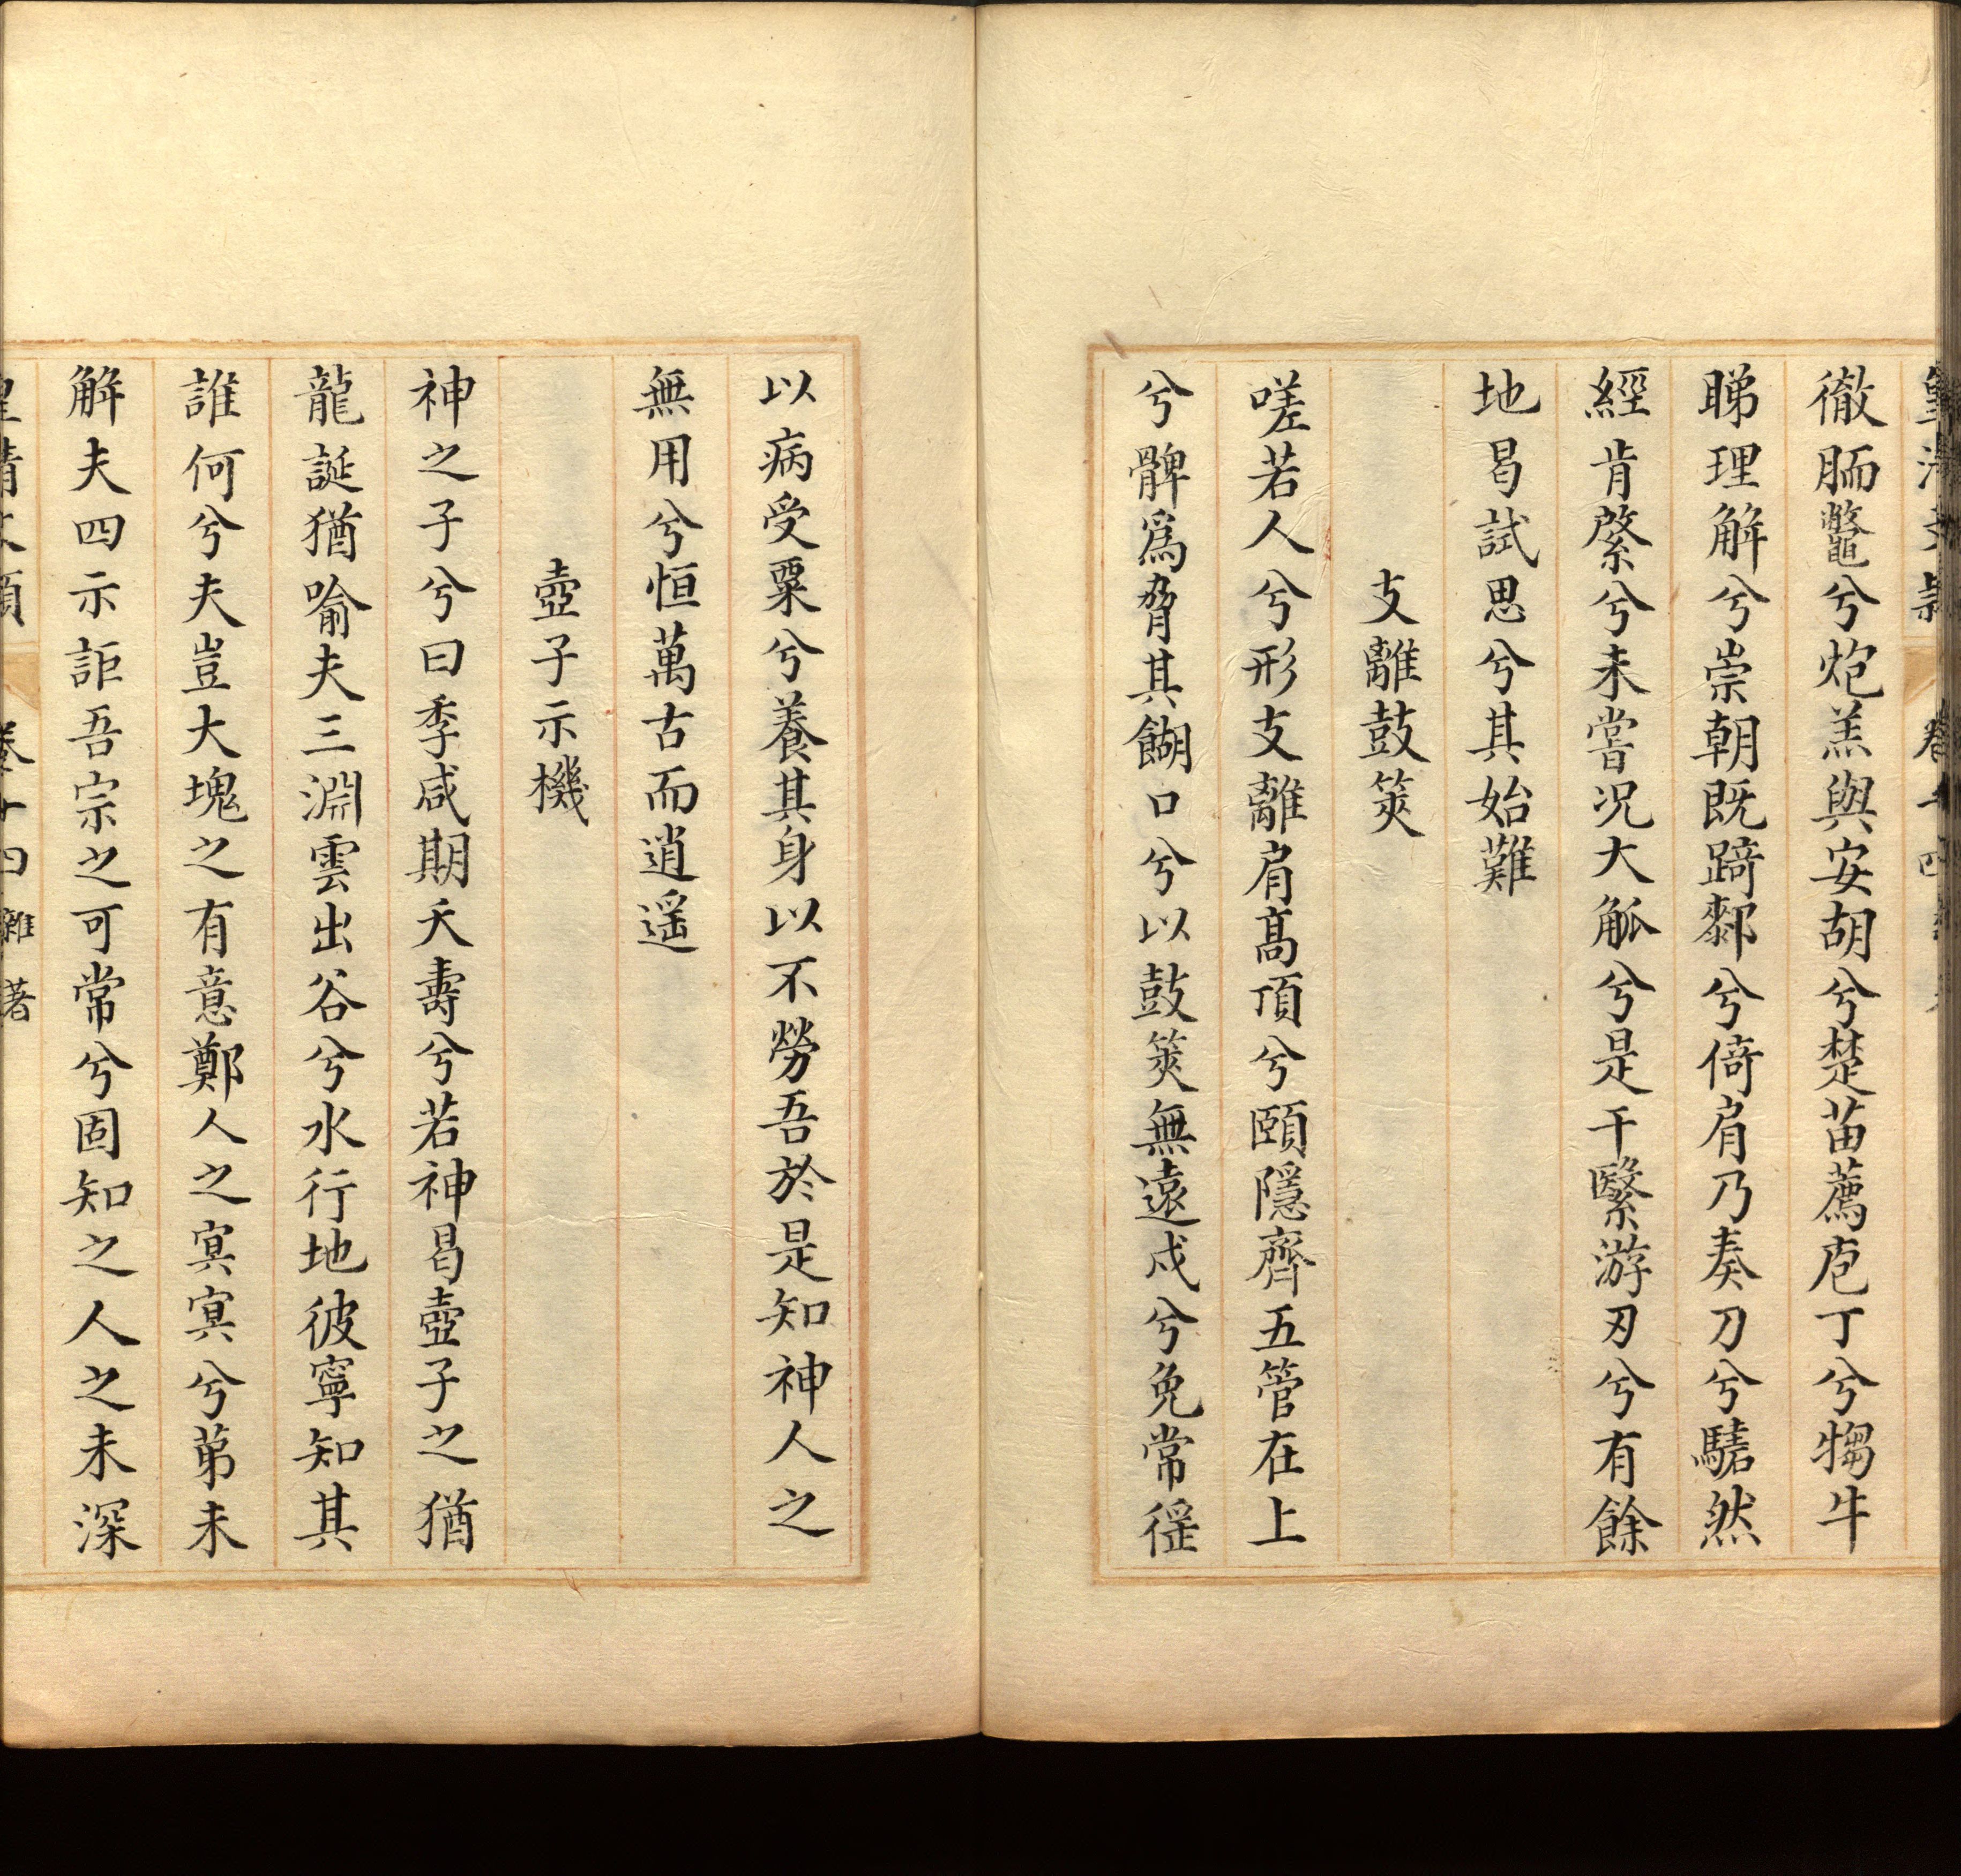 皇清文穎　卷十四
徹胹鼈兮炮羔與安胡兮楚苗薦庖丁兮犓牛
睇理解兮崇朝既踦鄰兮倚肩乃奏刀兮騞然
經肯綮兮未嘗况大觚兮是干繄游刃兮有餘
地曷試思兮其始難
支離鼓筴
嗟若人兮形支離肩髙頂兮頤隱齊五管在上
兮髀爲脅其餬口兮以鼓筴無遠戍兮免常徭
以病受粟兮養其身以不勞吾於是知神人之
無用兮恒萬古而逍遥
壺子示機
神之子兮曰季咸期夭壽兮若神曷壺子之猶
龍誕猶喻夫三淵雲出谷兮水行地彼寧知其
誰何兮夫豈大塊之有意鄭人之㝠㝠兮苐未
解夫四示詎吾宗之可常兮固知之人之未深
皇清文穎　卷十四雜著